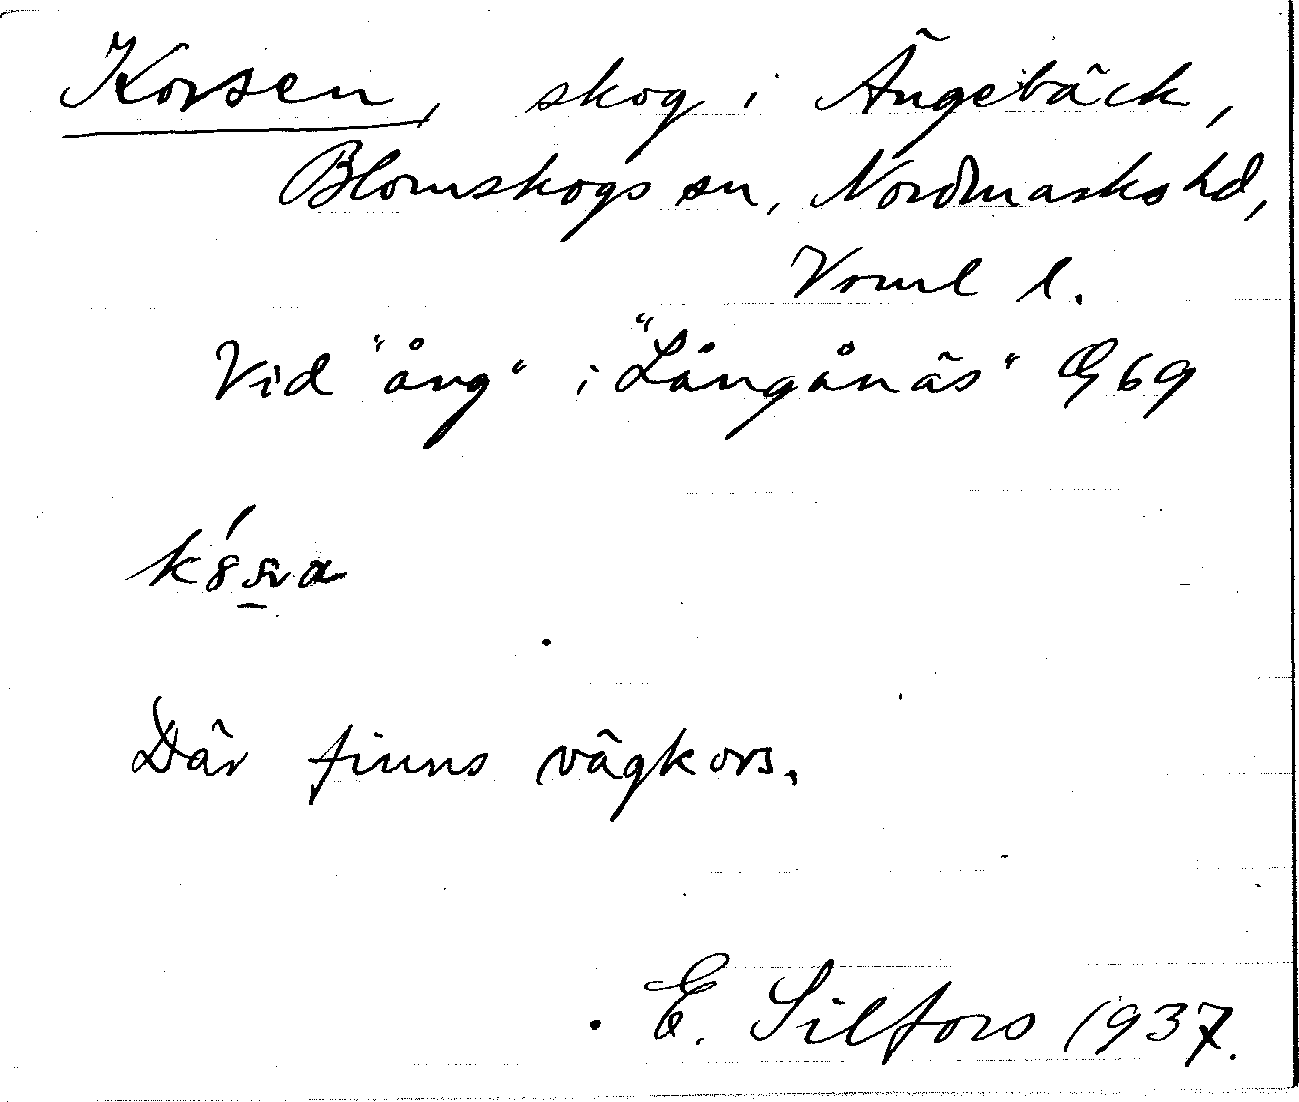 Korsen, skog i Ängebäck,
Blomskogs sn, Nordmarks hd,
Vrml l.
Vid "äng" i "Långånäs" G 69
Där finns vägkors.
E. Silfors 1937.